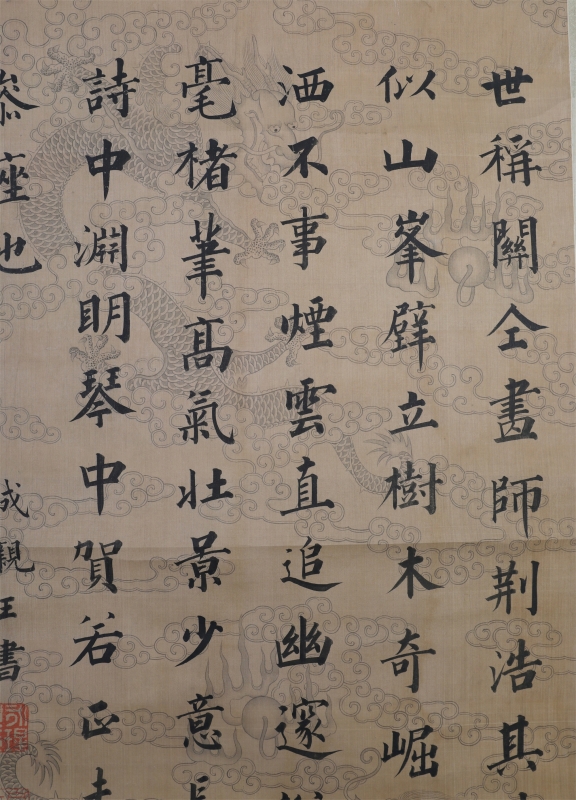 世稱關仝畫師荆浩其
似山峯壁立樹木奇崛
洒不事煙雲直追幽邃
毫楮筆高氣壯景少意長
詩中淵明琴中賀若正未
座也
成親王書